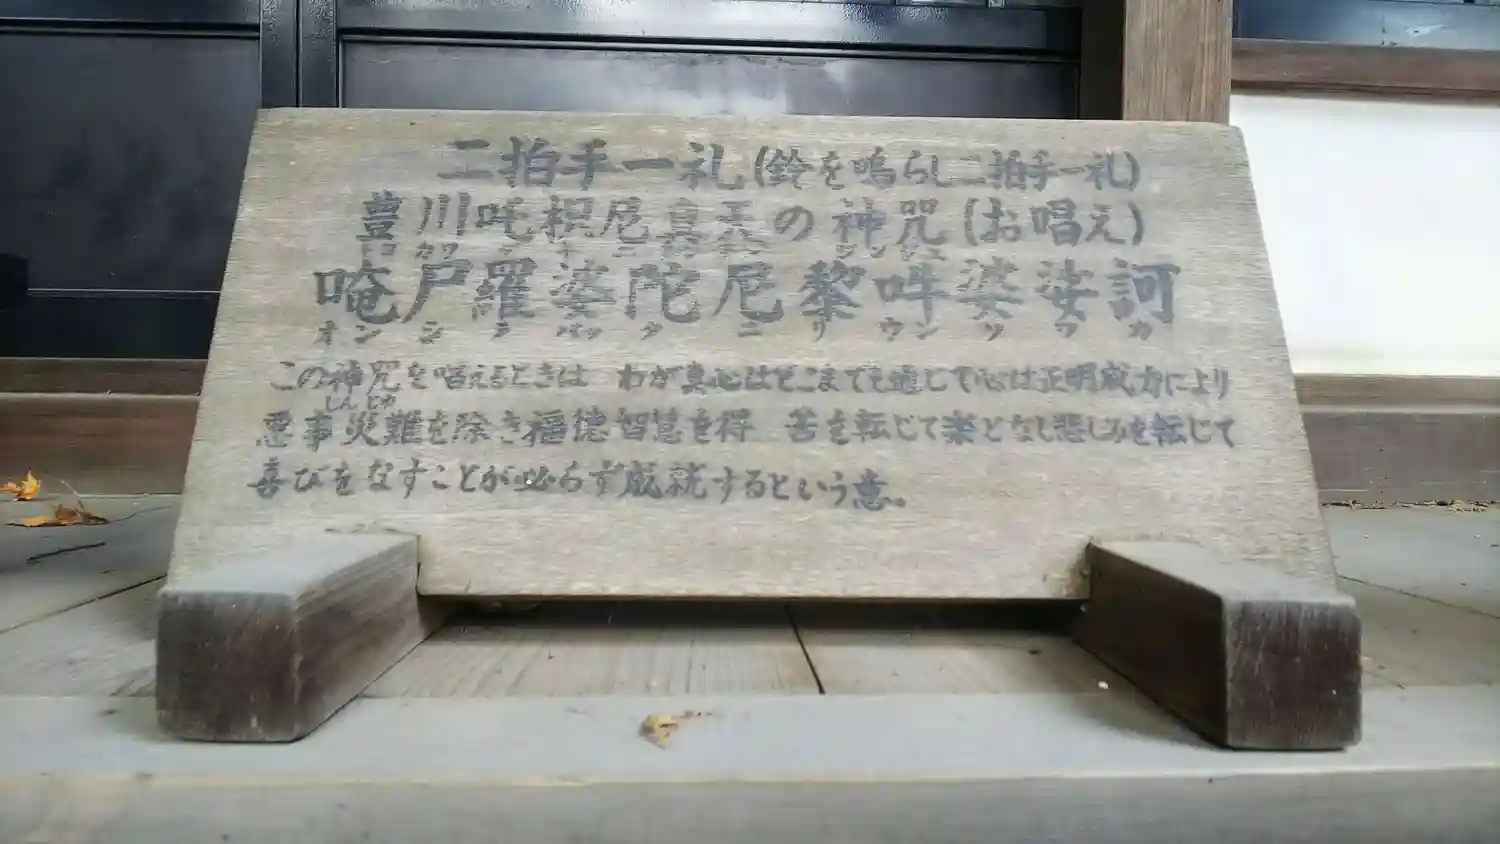 二拍手一礼(鈴を鳴らし二拍手一礼)
豊川吒枳尼真天の神咒(お唱え)
トヨ カワ ダ キ ニ シン テン シンジュ
唵尸羅婆陀尼黎吽娑婆訶
オン シ ラ バッ タ ニ リ ウン ソ ワ カ
この神咒を唱えるときは わが真心はどこまでも通じて心は正明威力により
しん じか
悪事災難を除き福徳智慧を得 苦を転じて楽となし悲しみを転じて
喜びをなすことが必らず成就するという意。